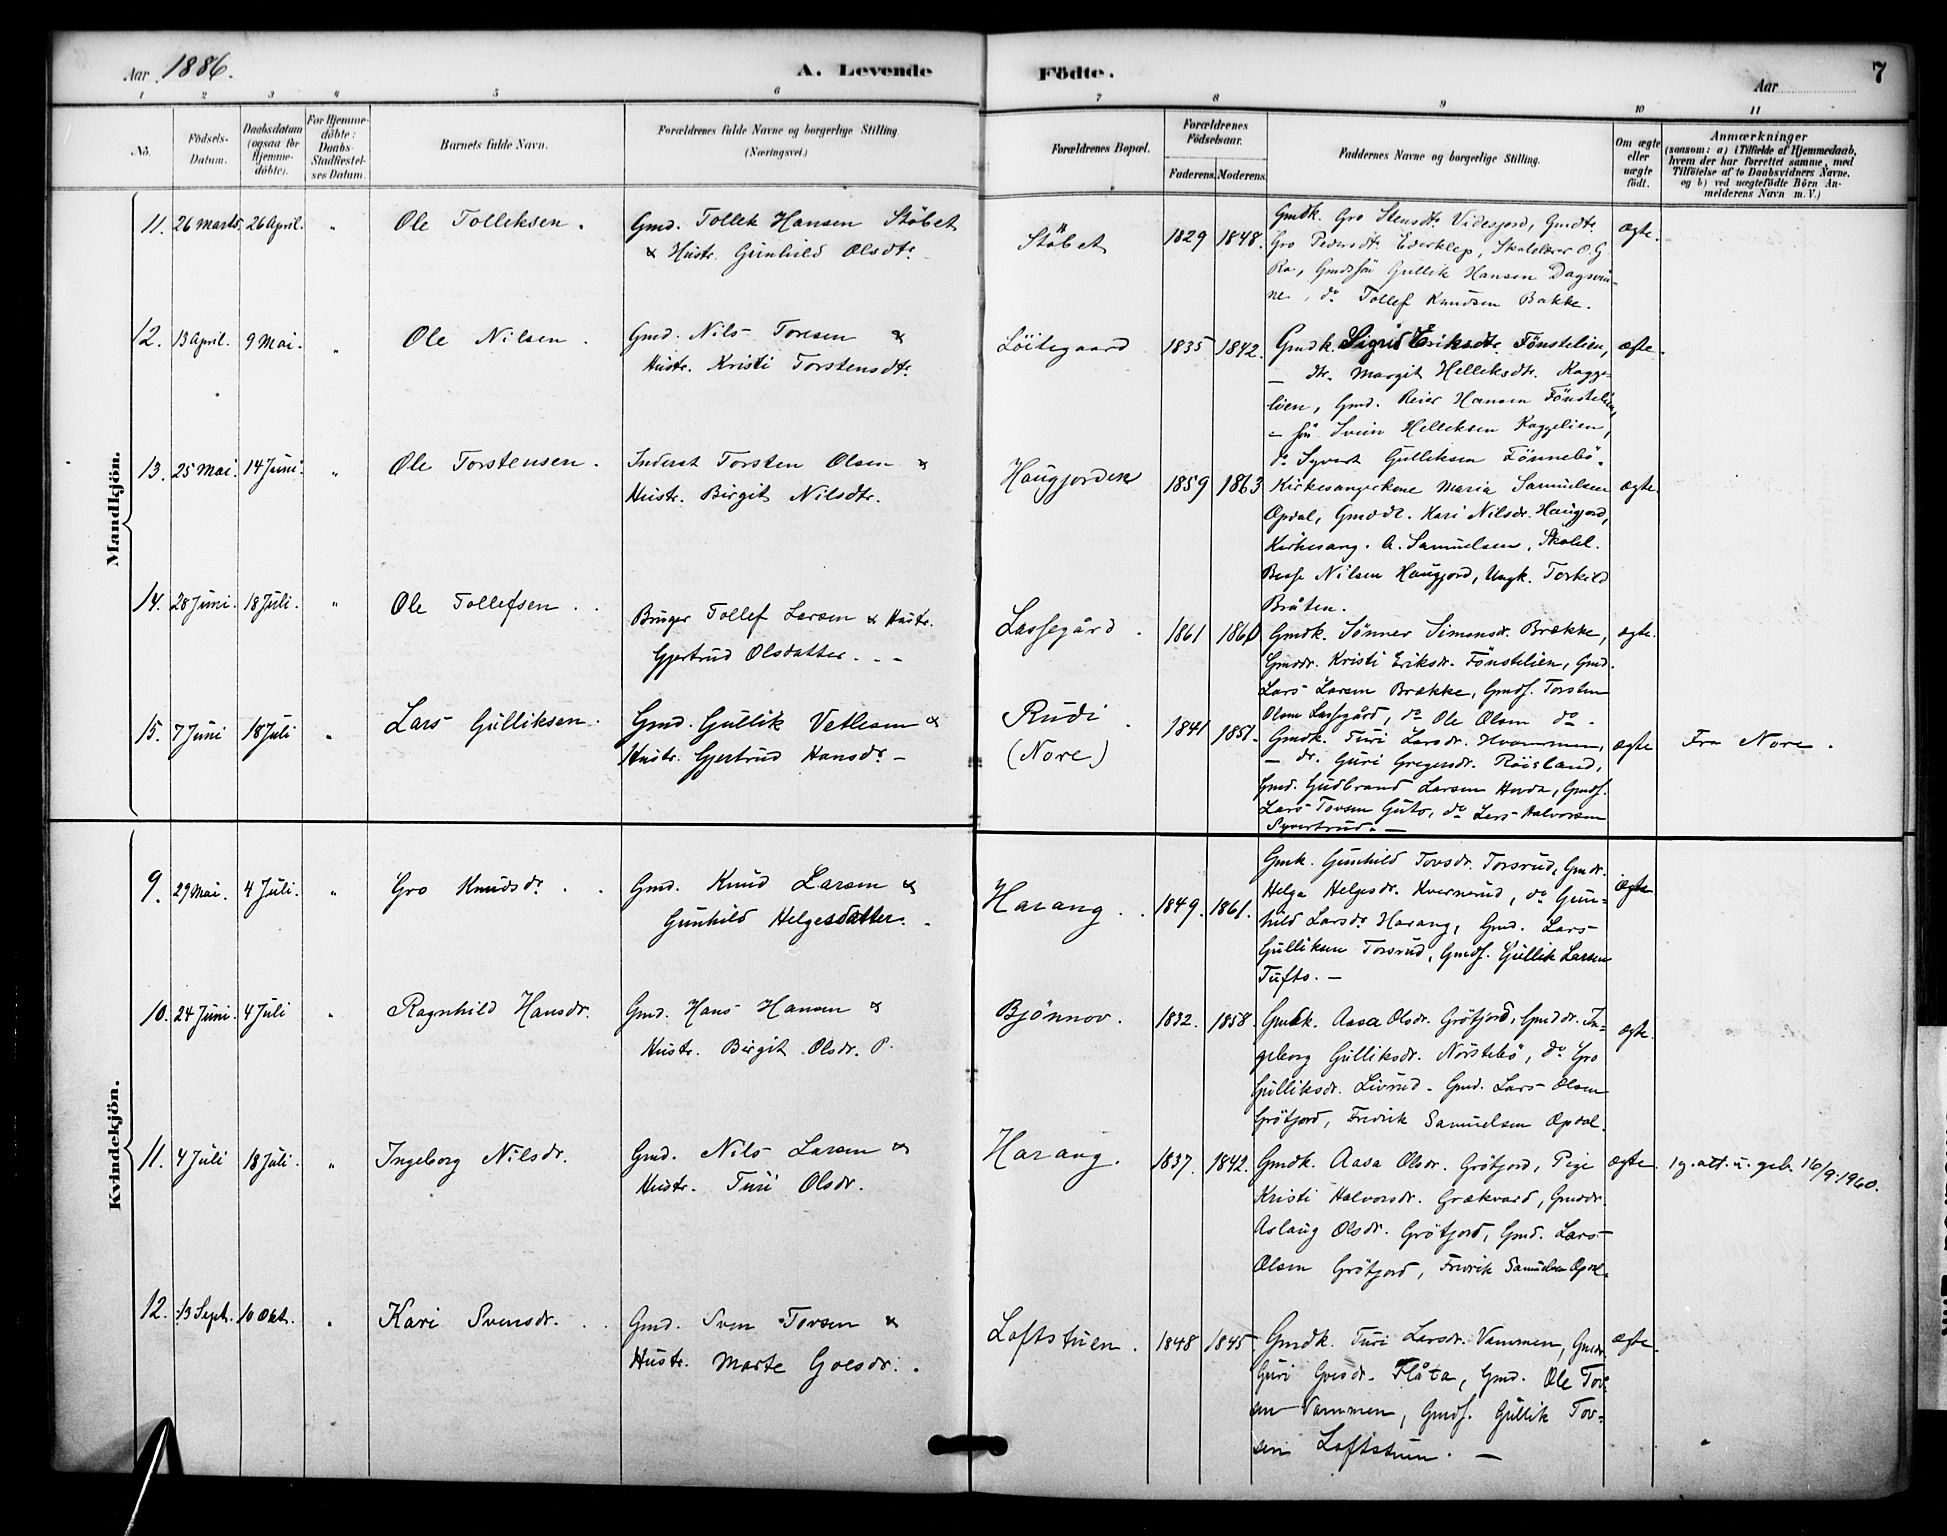 Aar 1886.
A. Levende Födte.
Aar
7
1 2 3 4 5 6 7 8 9 10 11
No.
Födsels-Datum.
Daabsdatum (ogsaa for Hjemme-döbte).
For Hjemme-döbte: Daabs-Stadfæstel-ses Datum.
Barnets fulde Navn.
Forældrenes fulde Navne og borgerlige Stilling (Næringsvei.)
Forældrenes Bopæl.
Forældrenes Födselsaar.
Faderens. Moderens.
Faddernes Navne og borgerlige Stilling.
Om ægte eller uægte födt.
Anmærkninger
(saasom: a) i Tilfælde af Hjemmedaab,
hvem der har forrettet samme, med
Tilföielse af to Daabsvidners Navne.
og b) ved uægtefödte Börn An-
melderens Navn m. V.)
Mandkjön.
11. 26 Marts 26 April. " Ole Tolleksen.
Gmd. Tollek Hansen Stöbet
& Hustr. Gunhild Olsdtr.
Stöbet 1829 1848.
Gmdk. Gro Stensdtr. Videsjord, Gmdtr.
Gro Pedersdtr. Ederklep, Skolelærer O. G.
Ra, Gmdsön Gullik Hansen Dagsvin-
ne, do Tollef Knudsen Bakke.
ægte.
12. 13 April. 9 Mai. " Ole Nilsen.
Gmd. Nils Toresen &
Hustr. Kristi Torstensdtr.
Löitegaard 1835 1842.
Gmdk. Sigrid Eriksdtr. Fönstelien,
— dtr. Margit Helleksdtr. Kagge-
lien, Gmd. Reier Hansen Fönstelien,
— sön Svein Helleksen Kaggelien,
do Syvert Gulliksen Fönnebö.
ægte.
13. 25 Mai. 14 Juni. " Ole Torstensen.
Inderst Torsten Olsen &
Hustr. Birgit Nilsdtr.
Haugjorden 1859 1863
Kirkesangerkone Maria Samuelsen
Opdal, Gmddt. Kari Nilsdr. Haugjord,
Kirkesang. A. Samuelsen, Skolel.
Nilsen Haugjord, Ungk. Torkild
Bråten.
ægte.
14. 28 Juni. 18 Juli. " Ole Tollefsen.
Bruger Tollef Larsen & Hustr.
Gjertrud Olsdatter. - -
Lassegård. 1861 1860
Gmdk. Sönner Simensdr. Brække,
Gmddr. Kristi Eriksdr. Fönstelien, Gmd.
Lars Larsen Brække, Gmds. Torsten
Olsen Lassegård, do Ole Olsen do.
ægte.
15. 7 Juni 18 Juli " Lars Gulliksen.
Gmd. Gullik Vetlesen &
Hustr. Gjertrud Hansdr. -
Rudi. (Nore) 1841 1851.
Gmdk. Turi Larsdr. Hvammen,
— dr. Guri Gregersdr. Röisland,
Gmd. Gudbrand Larsen, Gmds.
Lars Tovsen Guto, do Lars Halvorsen
Syvertrud. —
ægte
Fra Nore.
Kvindekjön.
9. 29 Mai. 4 Juli. " Gro Knudsdr.
Gmd. Knud Larsen &
Gunhild Helgesdatter.
Harang. 1849. 1861.
Gmk. Gunhild Tovsdr. Torsrud, Gmdr.
Helga Helgesdr. Kvernerud, do Gun-
hild Larsdr. Harang, Gmd. Lars
Gulliksen Torsrud, Gmds. Gullik Larsen
Tufto. —
ægte
10. 24 Juni. 4 Juli " Ragnhild Hansdr.
Gmd. Hans Hansen &
Hustr. Birgit Olsdr. P.
Björnov. 1832. 1858.
Gmdk. Aasa Olsdr. Grötjord, Gmddr. In-
geborg Gulliksdr. Norstebö, do Gro
Gulliksdr. Livrud. Gmd. Lars Olsen
Grötjord, Fredrik Samuelsen Opdal.
ægte.
11. 4 Juli 18 Juli. " Ingeborg Nilsdr.
Gmd. Nils Larsen &
Hustr. Turi Olsdr.
Harang. 1837. 1842.
Gmdk. Aasa Olsdr. Grötjord, Pige
Kristi Halvorsdr. Grækvard, Gmddr.
Aslaug Olsdr. Grötjord, Gmd. Lars
Olsen Grötjord, Fredrik Samuelsen Opdal.
ægte.
1 g. att. u. geb. 16/9.1960.
12. 13 Sept. 10 Okt. " Kari Svensdr.
Gmd. Sven Tovsen &
Hustr. Marte Goesdr.
Loftstuen. 1848 1845
Gmdk. Turi Larsdr. Vammen, Gmdr.
Guri Goesdr. Flåta, Gmd. Ole Tov-
sen Vammen, Gmds. Gullik Tov-
sen Loftstuen. —
ægte.